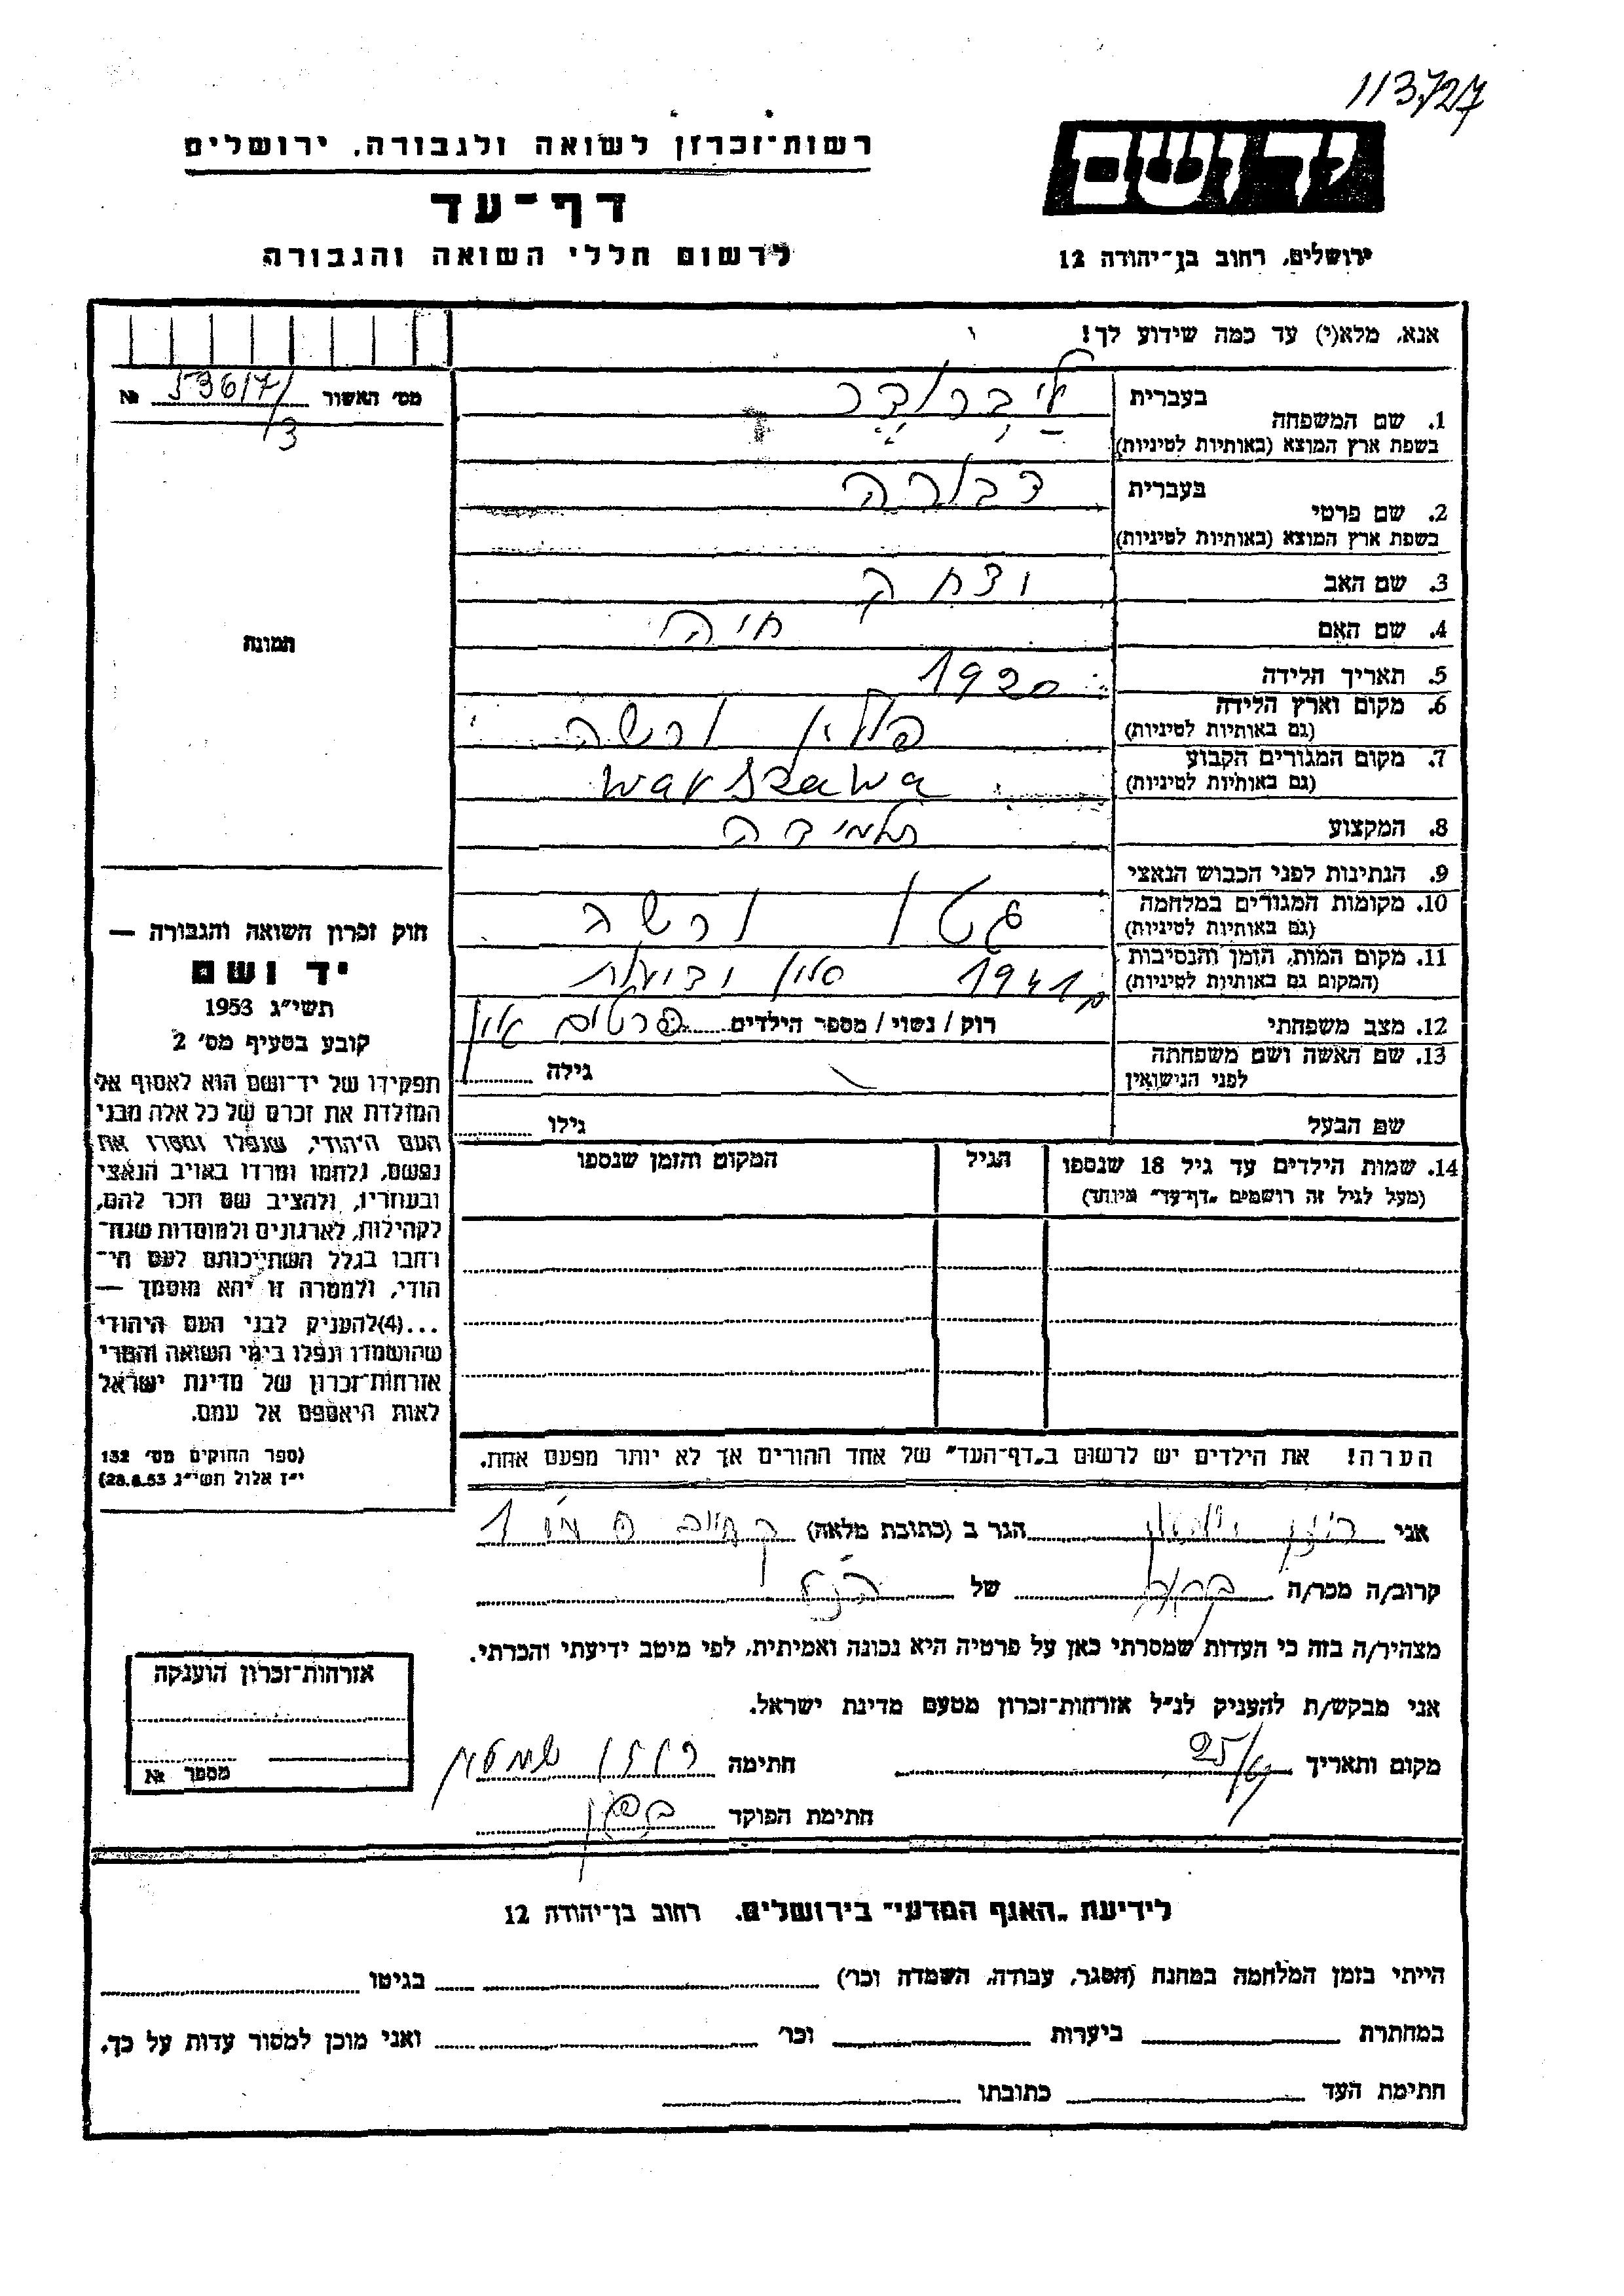 113727
רשות־זכרון לשואה ולגבורה, ירושלים
דף־עד
לרשום חללי השואה והגבורה
יד ושם
ירושלים, רחוב בן־יהודה 12
אנא, מלא(י) עד כמה שידוע לך!
מס׳ האשור 53617/3 №
תמונה
1. שם המשפחה
בעברית ליברודר
בשפת ארץ המוצא (באותיות לטיניות)
2. שם פרטי
בעברית דבורה
בשפת ארץ המוצא (באותיות לטיניות)
3. שם האב יצחק
4. שם האם חיה
5. תאריך הלידה 1920
6. מקום וארץ הלידה פולין ורשה
(גם באותיות לטיניות)
7. מקום המגורים הקבוע Warszawa
(גם באותיות לטיניות)
8. המקצוע תלמידה
9. הנתינות לפני הכבוש הנאצי
10. מקומות המגורים במלחמה גטו ורשה
(גם באותיות לטיניות)
11. מקום המות, הזמן והנסיבות מ 1941 אין ידיעות
(המקום גם באותיות לטיניות)
12. מצב משפחתי רוק / נשוי / מספר הילדים פרטים אין
13. שם האשה ושם משפחתה גילה
לפני הנישואין
שם הבעל גילו
14. שמות הילדים עד גיל 18 שנספו הגיל המקום והזמן שנספו
(מעל לגיל זה רושמים „דף־עד״ מיוחד)
הערה! את הילדים יש לרשום ב„דף־העד״ של אחד ההורים אך לא יותר מפעם אחת.
חוק זכרון השואה והגבורה —
יד ושם
תשי״ג 1953
קובע בסעיף מס׳ 2
תפקידו של יד־ושם הוא לאסוף אל
המולדת את זכרם של כל אלה מבני
העם היהודי, שנפלו ומסרו את
נפשם, נלחמו ומרדו באויב הנאצי
ובעוזריו, ולהציב שם וזכר להם,
לקהילות, לארגונים ולמוסדות שנח־
רחבו בגלל השתייכותם לעם הי־
הודי, ולמטרה זו יהא מוסמך —
...(4)להעניק לבני העם היהודי
שהושמדו ונפלו בימי השואה והמרי
אזרחות־זכרון של מדינת ישראל
לאות היאספם אל עמם.
(ספר החוקים מס׳ 132
י״ז אלול תשי״ג 28.8.53)
אני הגר ב (כתובת מלאה) 1
קרוב/ה מכר/ה של
מצהיר/ה בזה כי העדות שמסרתי כאן על פרטיה היא נכונה ואמיתית, לפי מיטב ידיעתי והכרתי.
אני מבקש/ת להעניק לנ״ל אזרחות־זכרון מטעם מדינת ישראל.
מקום ותאריך חתימה
חתימת הפוקד
אזרחות־זכרון הוענקה
מספר №
לידיעת „האגף המדעי״ בירושלים, רחוב בן־יהודה 12
הייתי בזמן המלחמה במחנה (הסגר, עבודה, השמדה וכו׳) בגיטו
במחתרת ביערות וכו׳ ואני מוכן למסור עדות על כך.
חתימת העד כתובתו